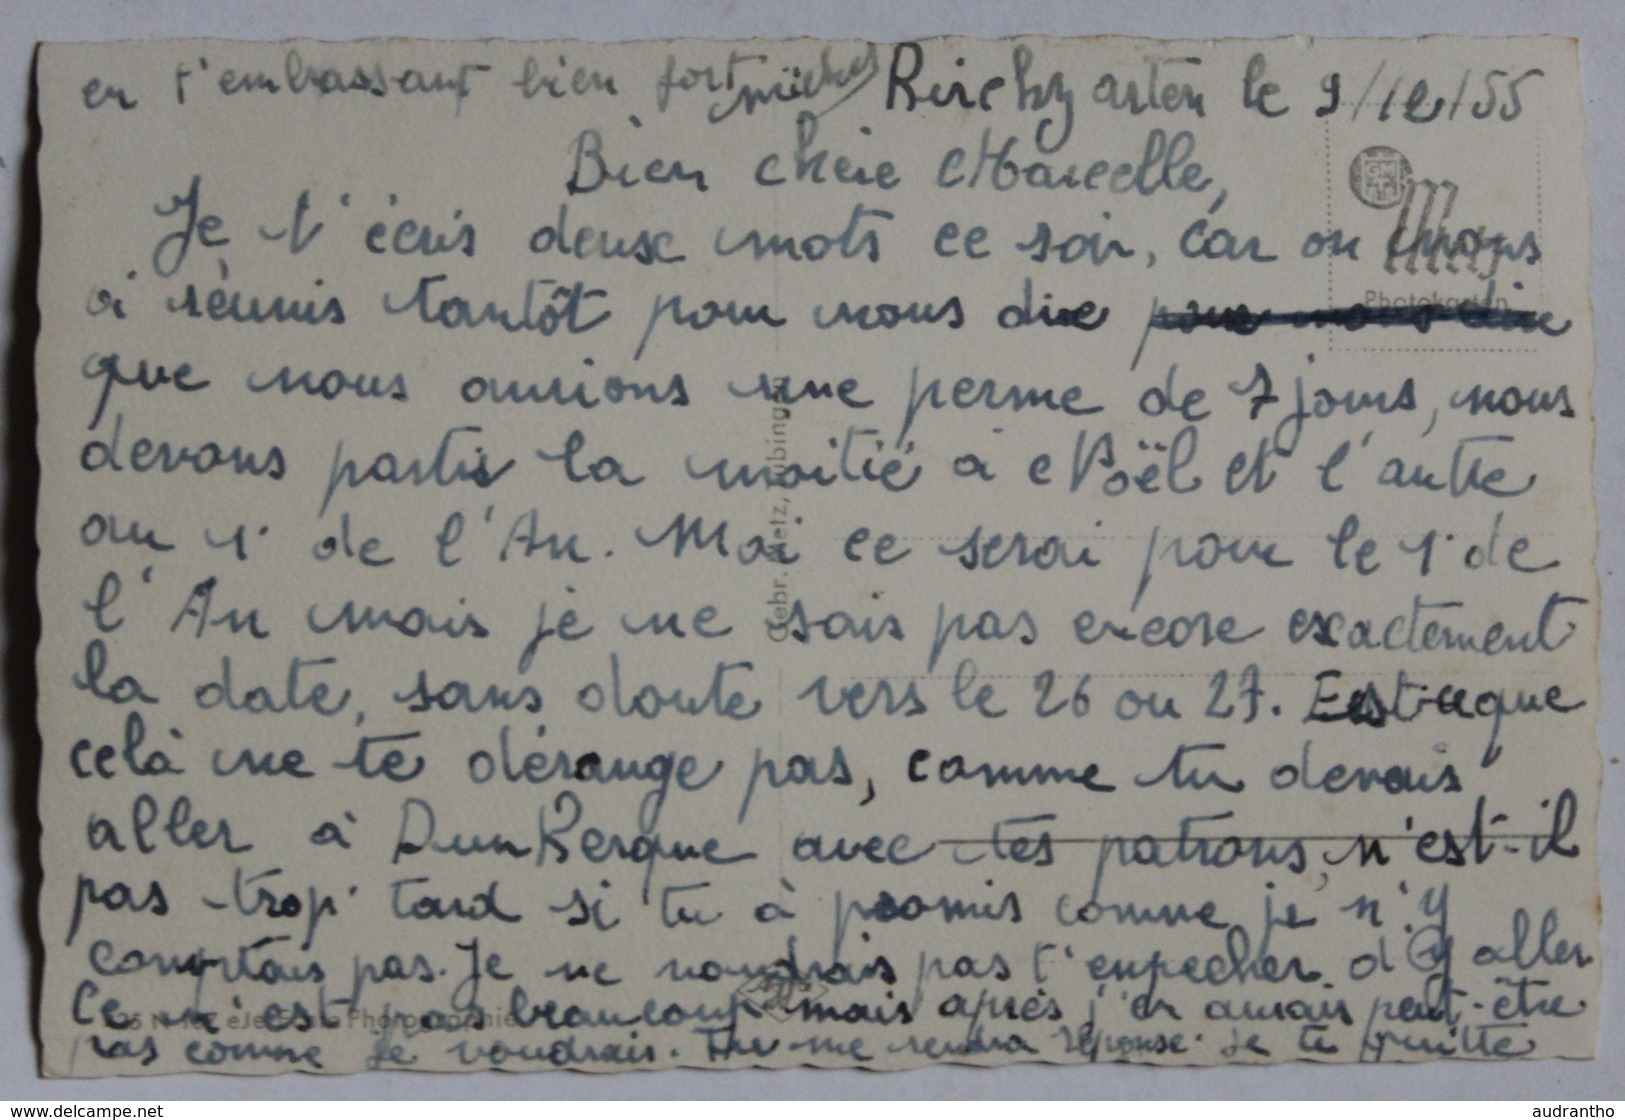 en t'embrassant bien fort
Kirchzarten le 9/12/55
Bien chère Marcelle,
Je t'écris deux mots ce soir, car on nous
a réunis tantôt pour nous dire pour nous dire
que nous aurions une perme de 7 jours, nous
devons partir la moitié à Noël et l'autre
au 1· de l'An. Moi ce serai pour le 1· de
l'An mais je ne sais pas encore exactement
la date, sans doute vers le 26 ou 27. Est-ce que
celà ne te dérange pas, comme tu devais
aller à DunKerque avec tes patrons, n'est-il
pas trop tard si tu à promis comme je n'y
comptais pas. Je ne voudrais pas t'empecher d'y aller
Ce n'est pas beaucoup mais après j'en aurais peut-être
pas comme je voudrais. Tu me rendra réponse. Je te quitte
GM
Metz
Photokarten
Gebr. Metz, Tübingen
https://www.delcampe.net
audrantho